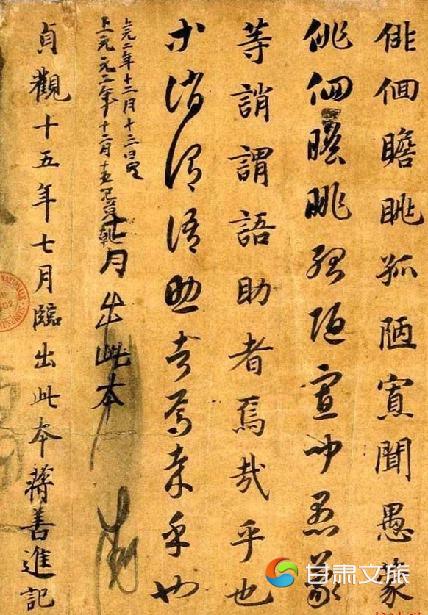 俳佪瞻眺孤陋寡聞愚蒙
俳佪瞻眺孤陋寡聞愚蒙
等誚謂語助者焉哉乎也
等誚謂語助者焉哉乎也
七月出此本
上元二年十二月十三日
上元元二年十二月十五
貞觀十五年七月臨出此本蔣善進記
甘肃文旅